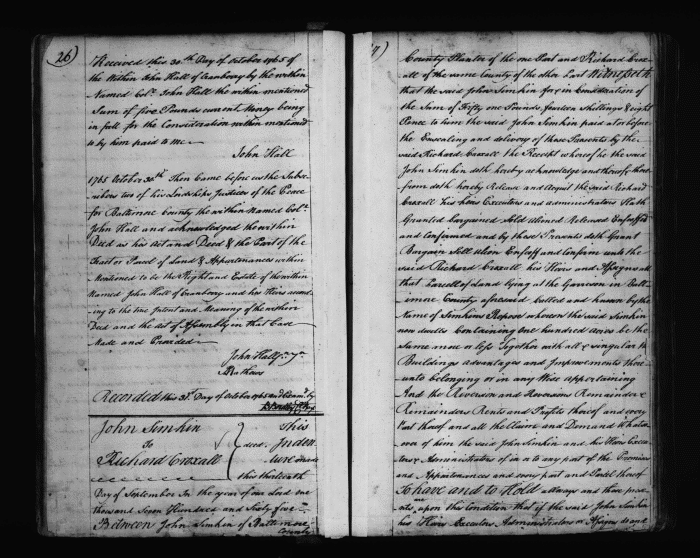 26)
Received this 30th Day of October 1765 of
the Within John Hall of Cranberry by the within
Named Colo. John Hall the within mentioned
Sum of five Pounds current Money being
in full for the Consideration within mentioned
to by him paid to me
John Hall
1765 October 30th Then Came before us the Subs-
cribers two of his Lordships Justices of the Peace
for Baltimore County the within Named Colo.
John Hall and acknowledged the within
Deed as his Act and Deed & the Part of the
Tract or Parcel of Land & Appurtenances within
Mentioned to be the Right and Estate of the within
Named John Hall of Cranberry and his Heirs accord-
ing to the true Intent and Meaning of the within
Deed and the Act of Assembly in that Case
Made and Provided
John Hall
Mathews
Recorded this 31st Day of October 1765 and
John Simkin
To
Richard Croxall
This
Inden-
ture made
this thirteenth
Day of September In the year of our Lord one
thousand Seven Hundred and Sixty five
Between John Simkin of Baltimore
County
7)
County Planter of the one Part and Richard Crox-
all of the same County of the other Part Witnesseth
that the said John Simkin for & in Consideration of
the Sum of Fifty one Pounds, fourteen Shillings & eight
Pence to him the said John Simkin paid at or before
the Ensealing and delivery of these Presents by the
said Richard Croxall the Receipt whereof he the said
John Simkin doth hereby acknowledge and thereof & there-
from doth hereby Release and Acquit the said Richard
Croxall his Heirs Executors and Administrators Hath
Granted Bargained Sold Aliened Released Enfeoffed
and Confirmed and by these Presents doth Grant
Bargain Sell Alien Enfeoff and Confirm unto the
said Richard Croxall his Heirs and Assigns all
that Parcell of Land lying at the Garrison in Balt-
imore County aforesaid called and known by the
Name of Simkins Repose whereon the said Simkin
now dwells Containing one hundred acres be the
same more or less Together with all & singular the
Buildings advantages and Improvements there-
unto belonging or in any Wise appertaining
And the Reversion and Reversions Remainder &
Remainders Rents and Profits thereof and every
Part thereof and all the Claim and Demand Whatso-
ever of him the said John Simkin and his Heirs Execu-
tors & Administrators of in or to any part of the Premises
and Appurtenances and every part and Parcel thereof
To have and to Hold
upon this Condition that if the said John Simkin
his Heirs Executors Administrators or Assigns do and